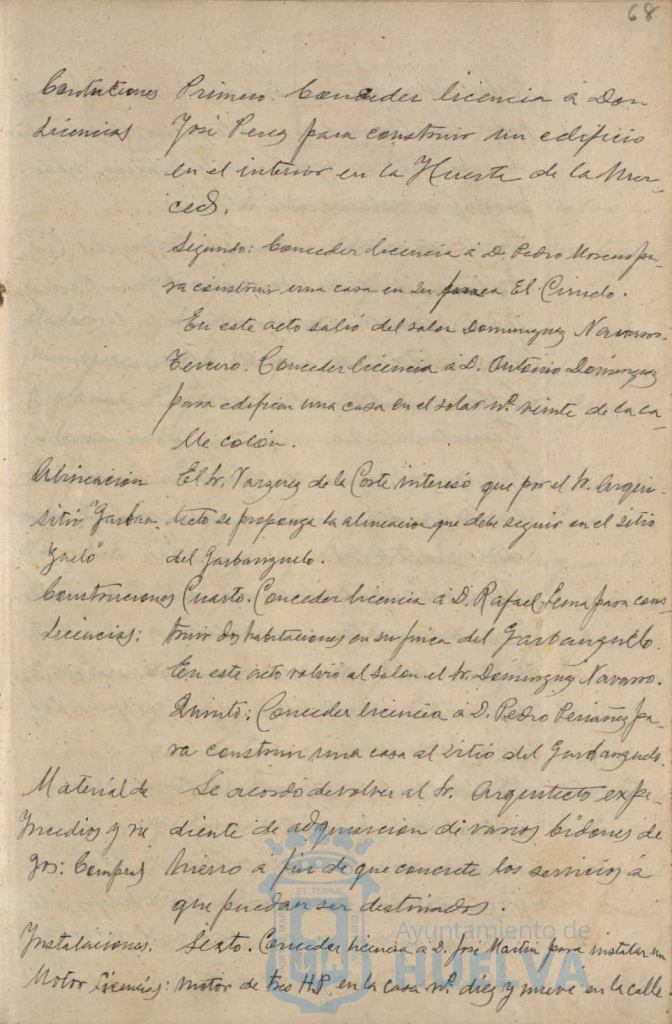 68
Contuciones Primero. Conceder licencia á Don
Licencias José Perez para construir un edificio
en el interior en la Huerta de la Mer-
ced.
Segundo: Conceder licencia á D. Pedro pa-
ra construir una casa en su finca El Ciruelo.
En este acto salió del salon Dominguez Navarro.
Tercero. Conceder licencia á D. Antonio Dominguez
para edificar una casa en el solar nº veinte de la ca-
lle Colón.
Alineacion El Sr. Vazquez de la Corte interesó que por el Sr. Arqui-
sitio "Garban tecto se proponga la alineacion que debe seguir en el sitio
zuelo" del Garbanzuelo.
Construciones Cuarto. Conceder licencia á D. Rafael Lema para cons-
Licencias: truir dos habitaciones en su finca del Garbanzuelo.
En este acto volvió al salon el Sr. Dominguez Navarro.
Quinto: Conceder licencia á D. Pedro Periañez pa-
ra construir una casa al sitio del Garbanzuelo.
Material de Se acordó devolver al Sr. Arquitecto expe-
Yncendios y rie diente de adquisicion de varios bidones de
gos: Compras hierro á fin de que concrete los servicios á
que puedan ser destinados.
Ynstalaciones: Sexto. Conceder licencia á D. José Martin para instalar un
Motor Licencias: motor de tres H.P. en la casa nº diez y nueve en la calle
Ayuntamiento de
HUELVA